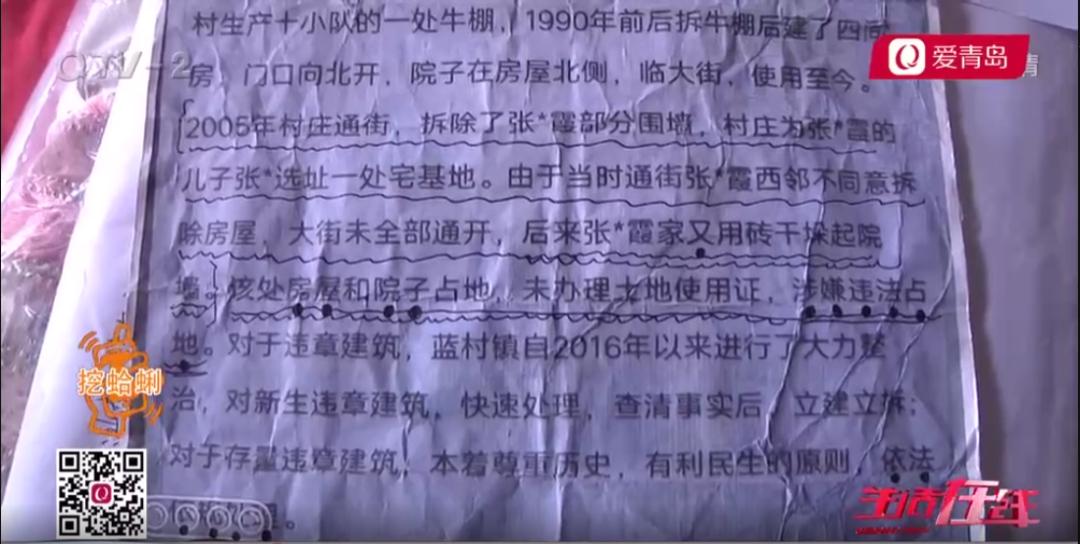 村生产十小队的一处牛棚，1990年前后拆牛棚后建了四间
房，门口向北开，院子在房屋北侧，临大街，使用至今。
2005年村庄通街，拆除了张*霞部分围墙，村庄为张*霞的
儿子张*选址一处宅基地。由于当时通街张*霞西邻不同意拆
除房屋，大街未全部通开，后来张*霞家又用砖干垛起院
墙。该处房屋和院子占地，未办理土地使用证，涉嫌违法占
地。对于违章建筑，蓝村镇自2016年以来进行了大力整
治，对新生违章建筑，快速处理，查清事实后，立建立拆；
对于存量违章建筑，本着尊重历史，有利民生的原则，依法
QTV-2
爱青岛
挖蛤蜊
生活在线